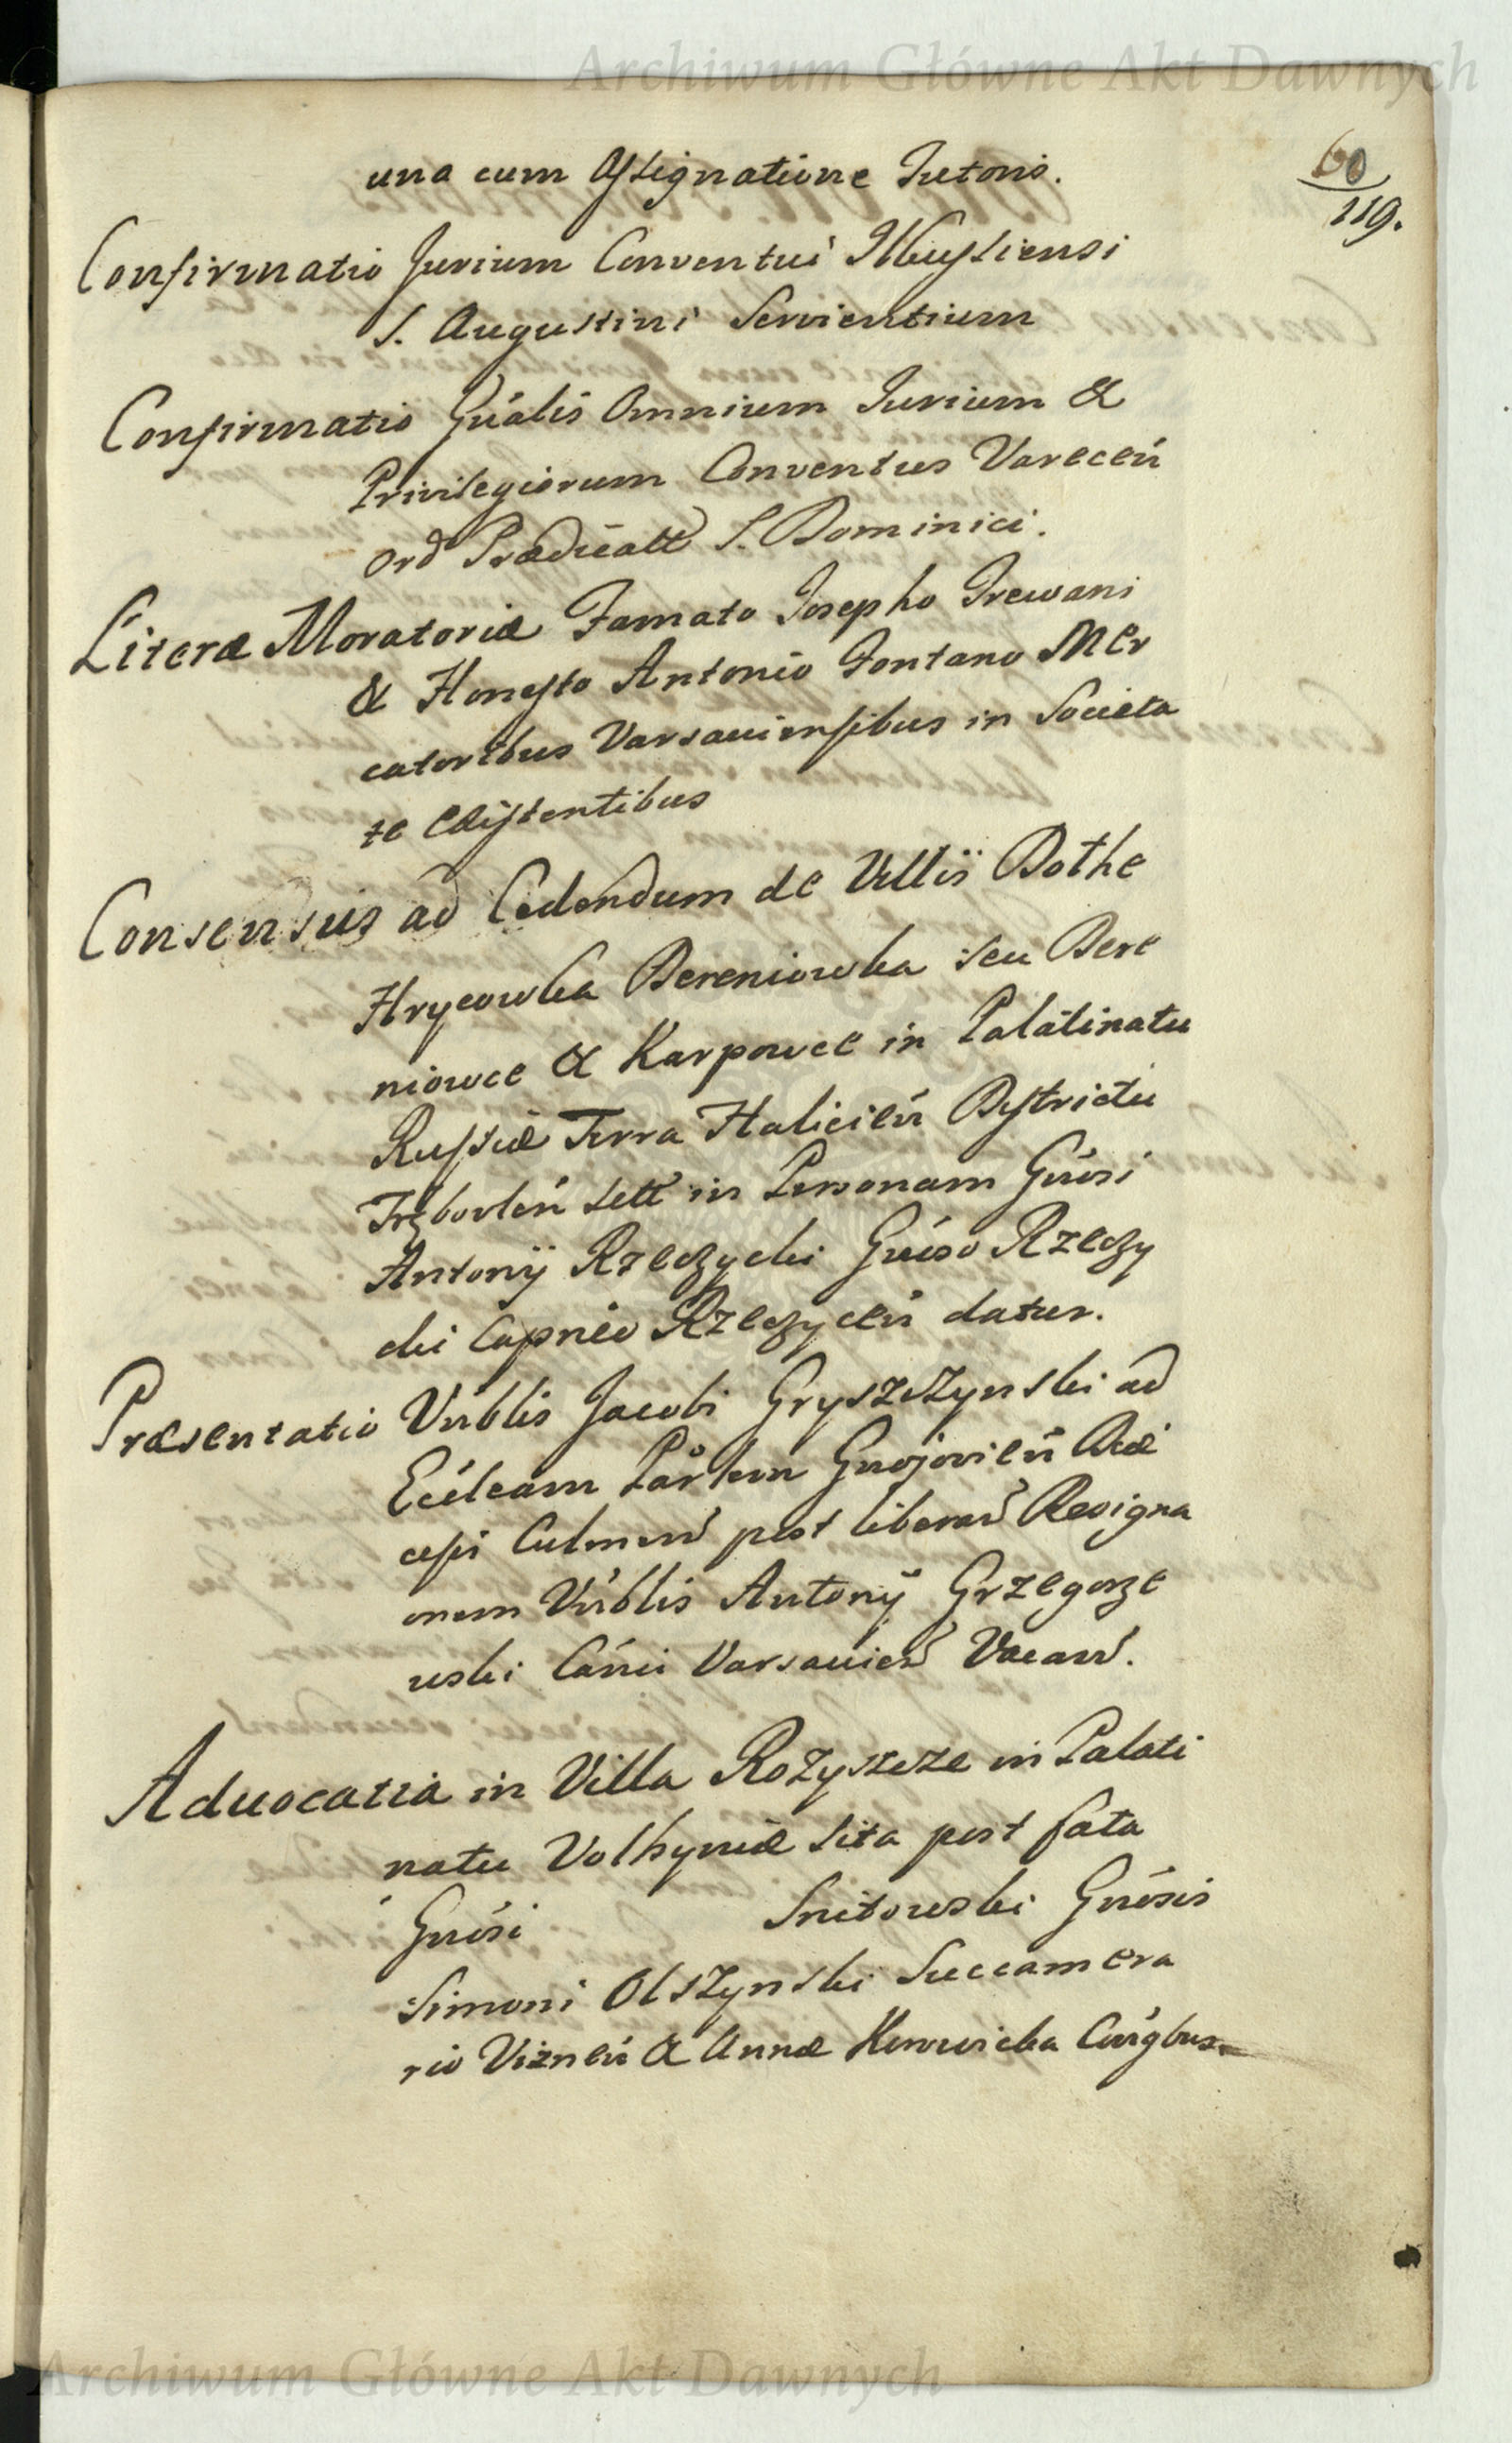 Archiwum Główne Akt Dawnych
60
119.
una cum Assignatione Tutoris.
Confirmatio Jurium Conventui Illkussiensi
S. Augustini Servientium
Confirmatio Gnalis Omnium Jurium &
Privilegiorum Conventus Varecen
Ord Prædicatt S. Dominici.
Literæ Moratoriæ Famato Josepho Trewani
& Honesto Antonio Fontano Mer
catoribus Varsaviensibus in Societa
te Existentibus
Consensus ad Cedendum de Villis Bothe
Hrycowka Bereniowka seu Bere
niowce & Karpowce in Palatinatu
Russiæ Terra Halicien Districtu
Trębovlen sitt in Personam Gnosi
Antonij Rzeczycki Gnoso Rzeczy
cki Capneo Rzeczycen datur.
Præsentatio Vnblis Jacobi Gryszczynski ad
Ecclesam Parlem Gnojovien Diæ
cesis Culmen post liberam Resigna
onem Vnblis Antonij Grzegorze
wski Canci Varsavien Vacan.
Advocatia in Villa Rozyszcze in Palati
natu Volhyniæ sita post fata
Gnosi Snitowski Gnosis
Simoni Olszynski Succamera
rio Viznen & Annæ Konwicka Conigbus
Archiwum Główne Akt Dawnych